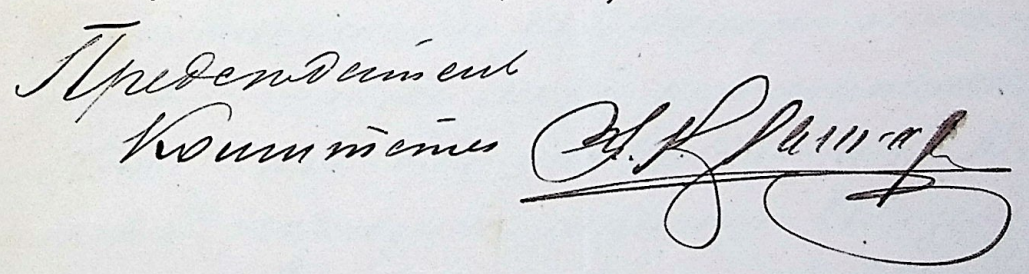 Председатель
Комитета